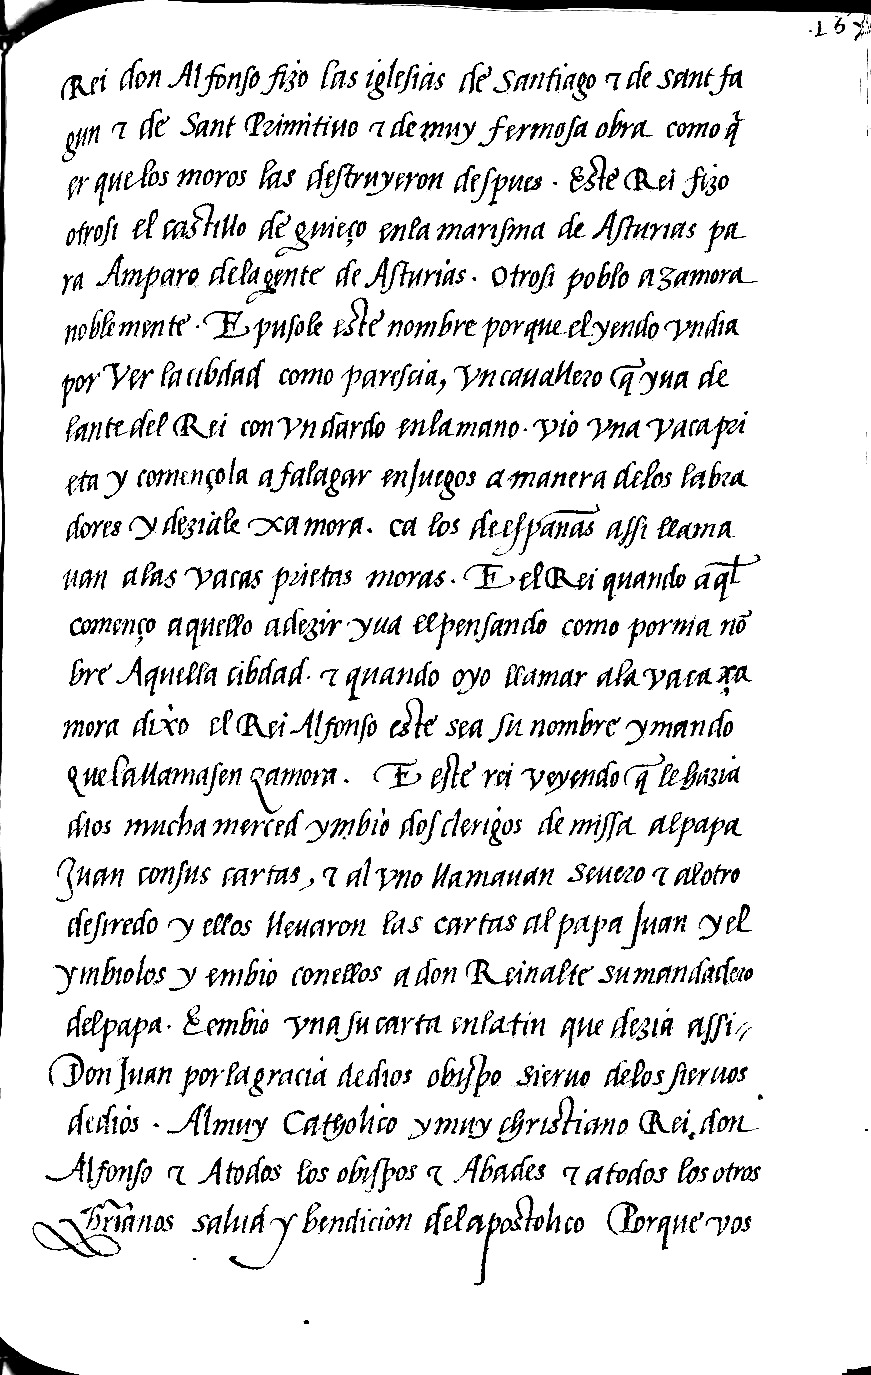 Rei don Alfonso fizo las iglesias de Santiago ⁊ de sant fa
gun ⁊ de Sant Primitiuo ⁊ de muy fermosa obra como q̃
er que los moros las destruyeron despues. Este Rei fizo
otrosi el castillo de guieço en la marisma de Asturias pa
ra Amparo de la gente de Asturias. Otrosi poblo a zamora
noblemente. E pusole este nombre porque el yendo vn dia
por Ver la cibdad como parescia, vn cauallero q̃ yua de
lante del Rei con vn dardo en la mano. vio vna vaca pri
eta y començola a falagar en juegos a manera de los labra
dores y deziale xamora. ca los de españas assi llama
uan a las vacas prietas moras. E el Rei quando aq̃l
començo aquello a dezir yua el pensando como pornia nõ
bre Aquella cibdad. ⁊ quando oyo llamar a la vaca xa
mora dixo el Rei Alfonso este sea su nombre y mando
que la llamasen zamora. E este rei veyendo q̃ le hazia
dios mucha merced ymbio dos clerigos de missa al papa
Juan con sus cartas, ⁊ al vno llamauan Seuero ⁊ al otro
desiredo y ellos lleuaron las cartas al papa Juan y el
ymbiolos y embio con ellos a don Reinalte su mandadero
del papa. E embio vna su carta en latin que dezia assi
Don Juan por la gracia de dios obispo sieruo de los sieruos
de dios. Al muy Catholico y muy christiano Rei don
Alfonso ⁊ A todos los obispos ⁊ Abades ⁊ a todos los otros
xp̃rianos salud y bendicion del apostolico Porque vos